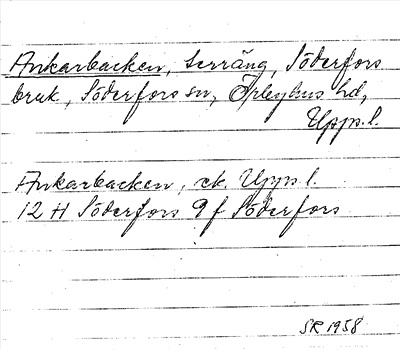 Ankarbacken, terräng, Söderfors
bruk, Söderfors sn, Örbyhus hd,
Upps. l.
Ankarbacken, ek. Upps l.
12 H Söderfors 9 f Söderfors
SR 1958